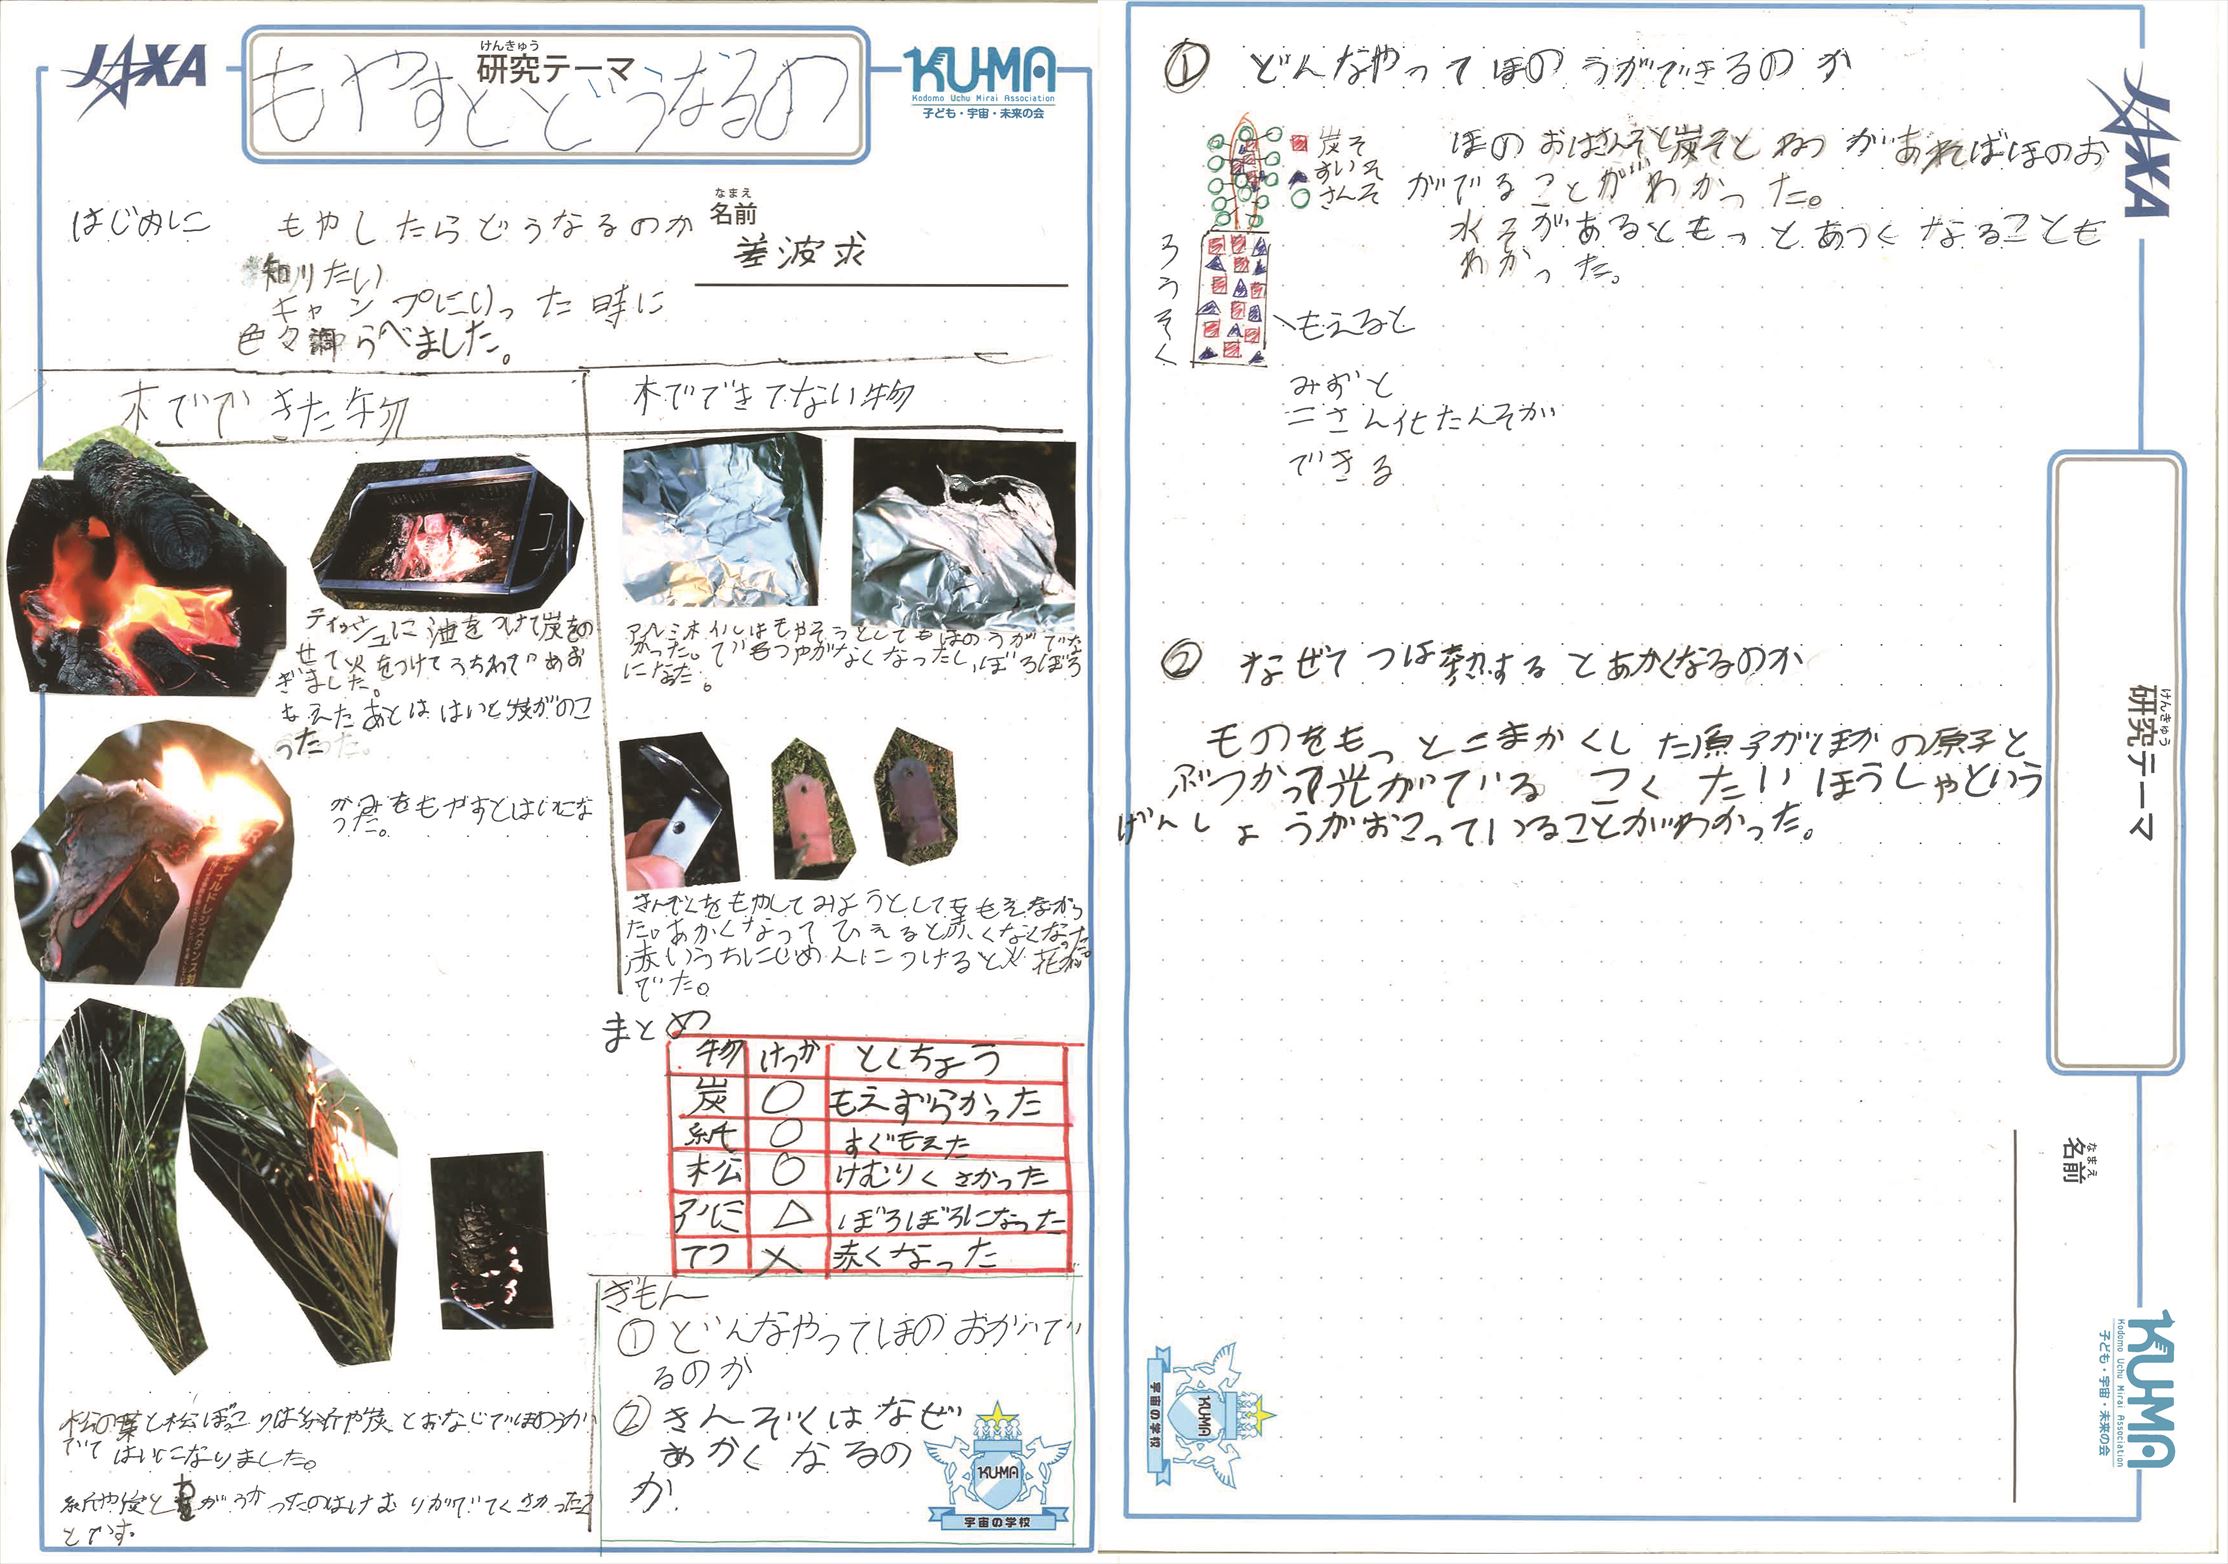 JAXA
けんきゅう
研究テーマ
もやすとどうなるの
KU-MA
Kodomo Uchu Mirai Association
子ども・宇宙・未来の会
なまえ
名前
差波求
はじめに もやしたらどうなるのか
知りたい
キャンプにいった時に
色々調らべました。
木でできた物
ティッシュに油をつけて炭をの
せて火をつけてうちわであお
ぎました。
もえたあとははいと炭がのこ
った
かみをもやすとはいにな
った。
チャイルドレジスタンス対
松の葉と松ぼっこりは紙や炭とおなじでほのうが
でてはいになりました。
紙や炭とちがうかったのはけむりがでてくさかったこ
とです。
木でできてない物
アルミホイルはもやそうとしてもほのうがでな
かった。でもつやがなくなったし、ぼろぼろ
になった。
きんぞくをもやしてみようとしてももえなかっ
た。あかくなってひえると赤くなくなった。
赤いうちにじめんにつけると火花が
でた。
まとめ
物 けっか とくちょう
炭 ○ もえずらかった
紙 ○ すぐもえた
松 ○ けむりくさかった
アルミ △ ぼろぼろになった
てつ × 赤くなった
ぎもん
① どんなやってほのおがで
るのか
② きんぞくはなぜ
あかくなるの
か
KU-MA
宇宙の学校
① どんなやってほのうができるのか
炭そ
すいそ
さんそ
ろうそく
もえると
みずと
二さん化たんそが
できる
ほのおはさんそと炭そとねつがあればほのお
がでることがわかった。
水そがあるともっとあつくなることも
わかった。
② なぜてつは熱するとあかくなるのか
ものをもっとこまかくした原子がほかの原子と
ぶつかって光がでている こくたいほうしゃという
げんしょうがおこっていることがわかった。
JAXA
けんきゅう
研究テーマ
なまえ
名前
KU-MA
Kodomo Uchu Mirai Association
子ども・宇宙・未来の会
KU-MA
宇宙の学校